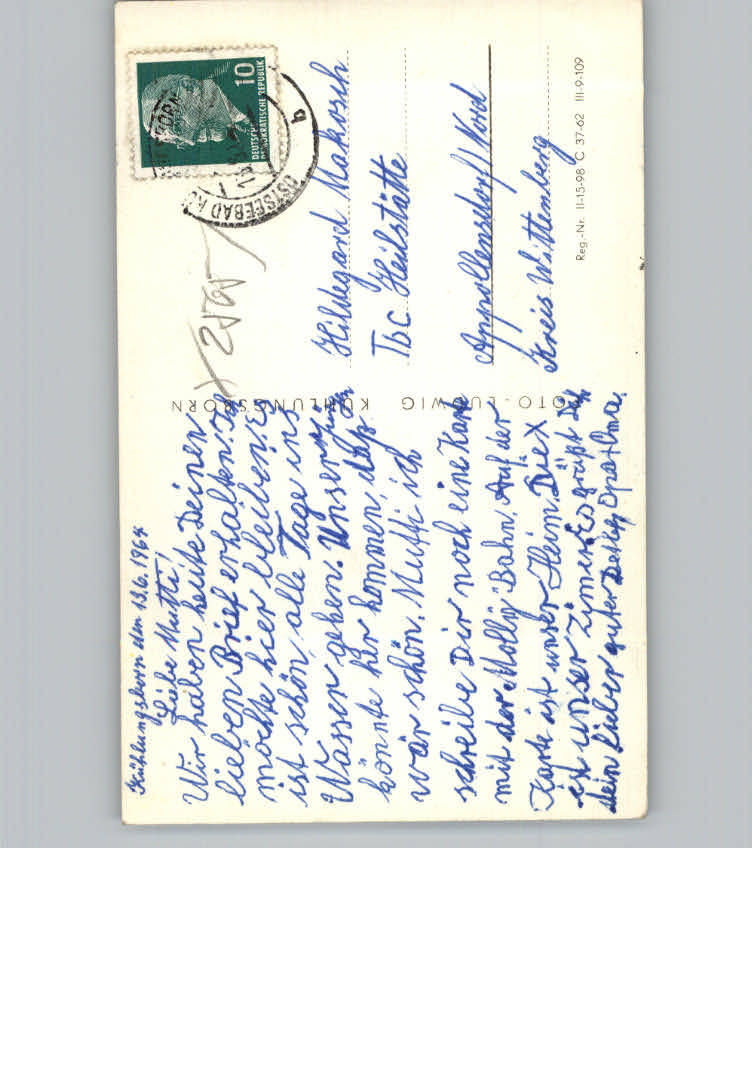 Kühlungsborn den 13.6.1964
Liebe Mutti!
Wir haben heute Deinen
lieben Brief erhalten. Ich
möchte hier bleiben. Es
ist schön, alle Tage ins
Wasser gehen. Unser
könnte her kommen, daß
wär schön. Mutti ich
schreibe Dir noch eine Karte
mit der "Molly" Bahn. Auf der
Karte ist unser Heim. Die X
ist unser Zimer. Es grüßt Dich
dein lieber guter Detlef, Opa Oma.
FOTO-LUDWIG KÜHLUNGSBORN
10
DEUTSCHE
DEMOKRATISCHE REPUBLIK
OSTSEEBAD KÜHLUNGSBORN
b
Hildegard Makosch
Tbc Heilstätte
Appollensdorf/Nord
Kreis Wittemberg
Reg.-Nr. II-15-98 C 37-62 III-9-109